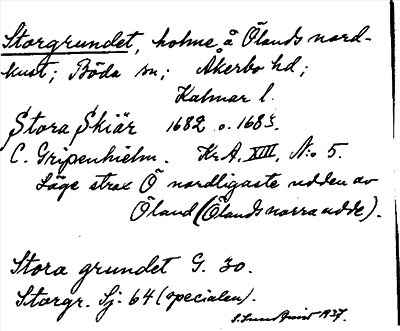 Storgrundet, holme å Ölands nord-
kust; Böda sn; Åkerbo hd;
Kalmar l.
Stora Skiär 1682 o. 1685.
C. Gripenhielm. Kr.A. XIII, N:o 5.
Läge strax Ö nordligaste udden av
Öland (Ölands norra udde).
Stora grundet G. 30.
Storgr. Sj. 64 (specialen).
1937.